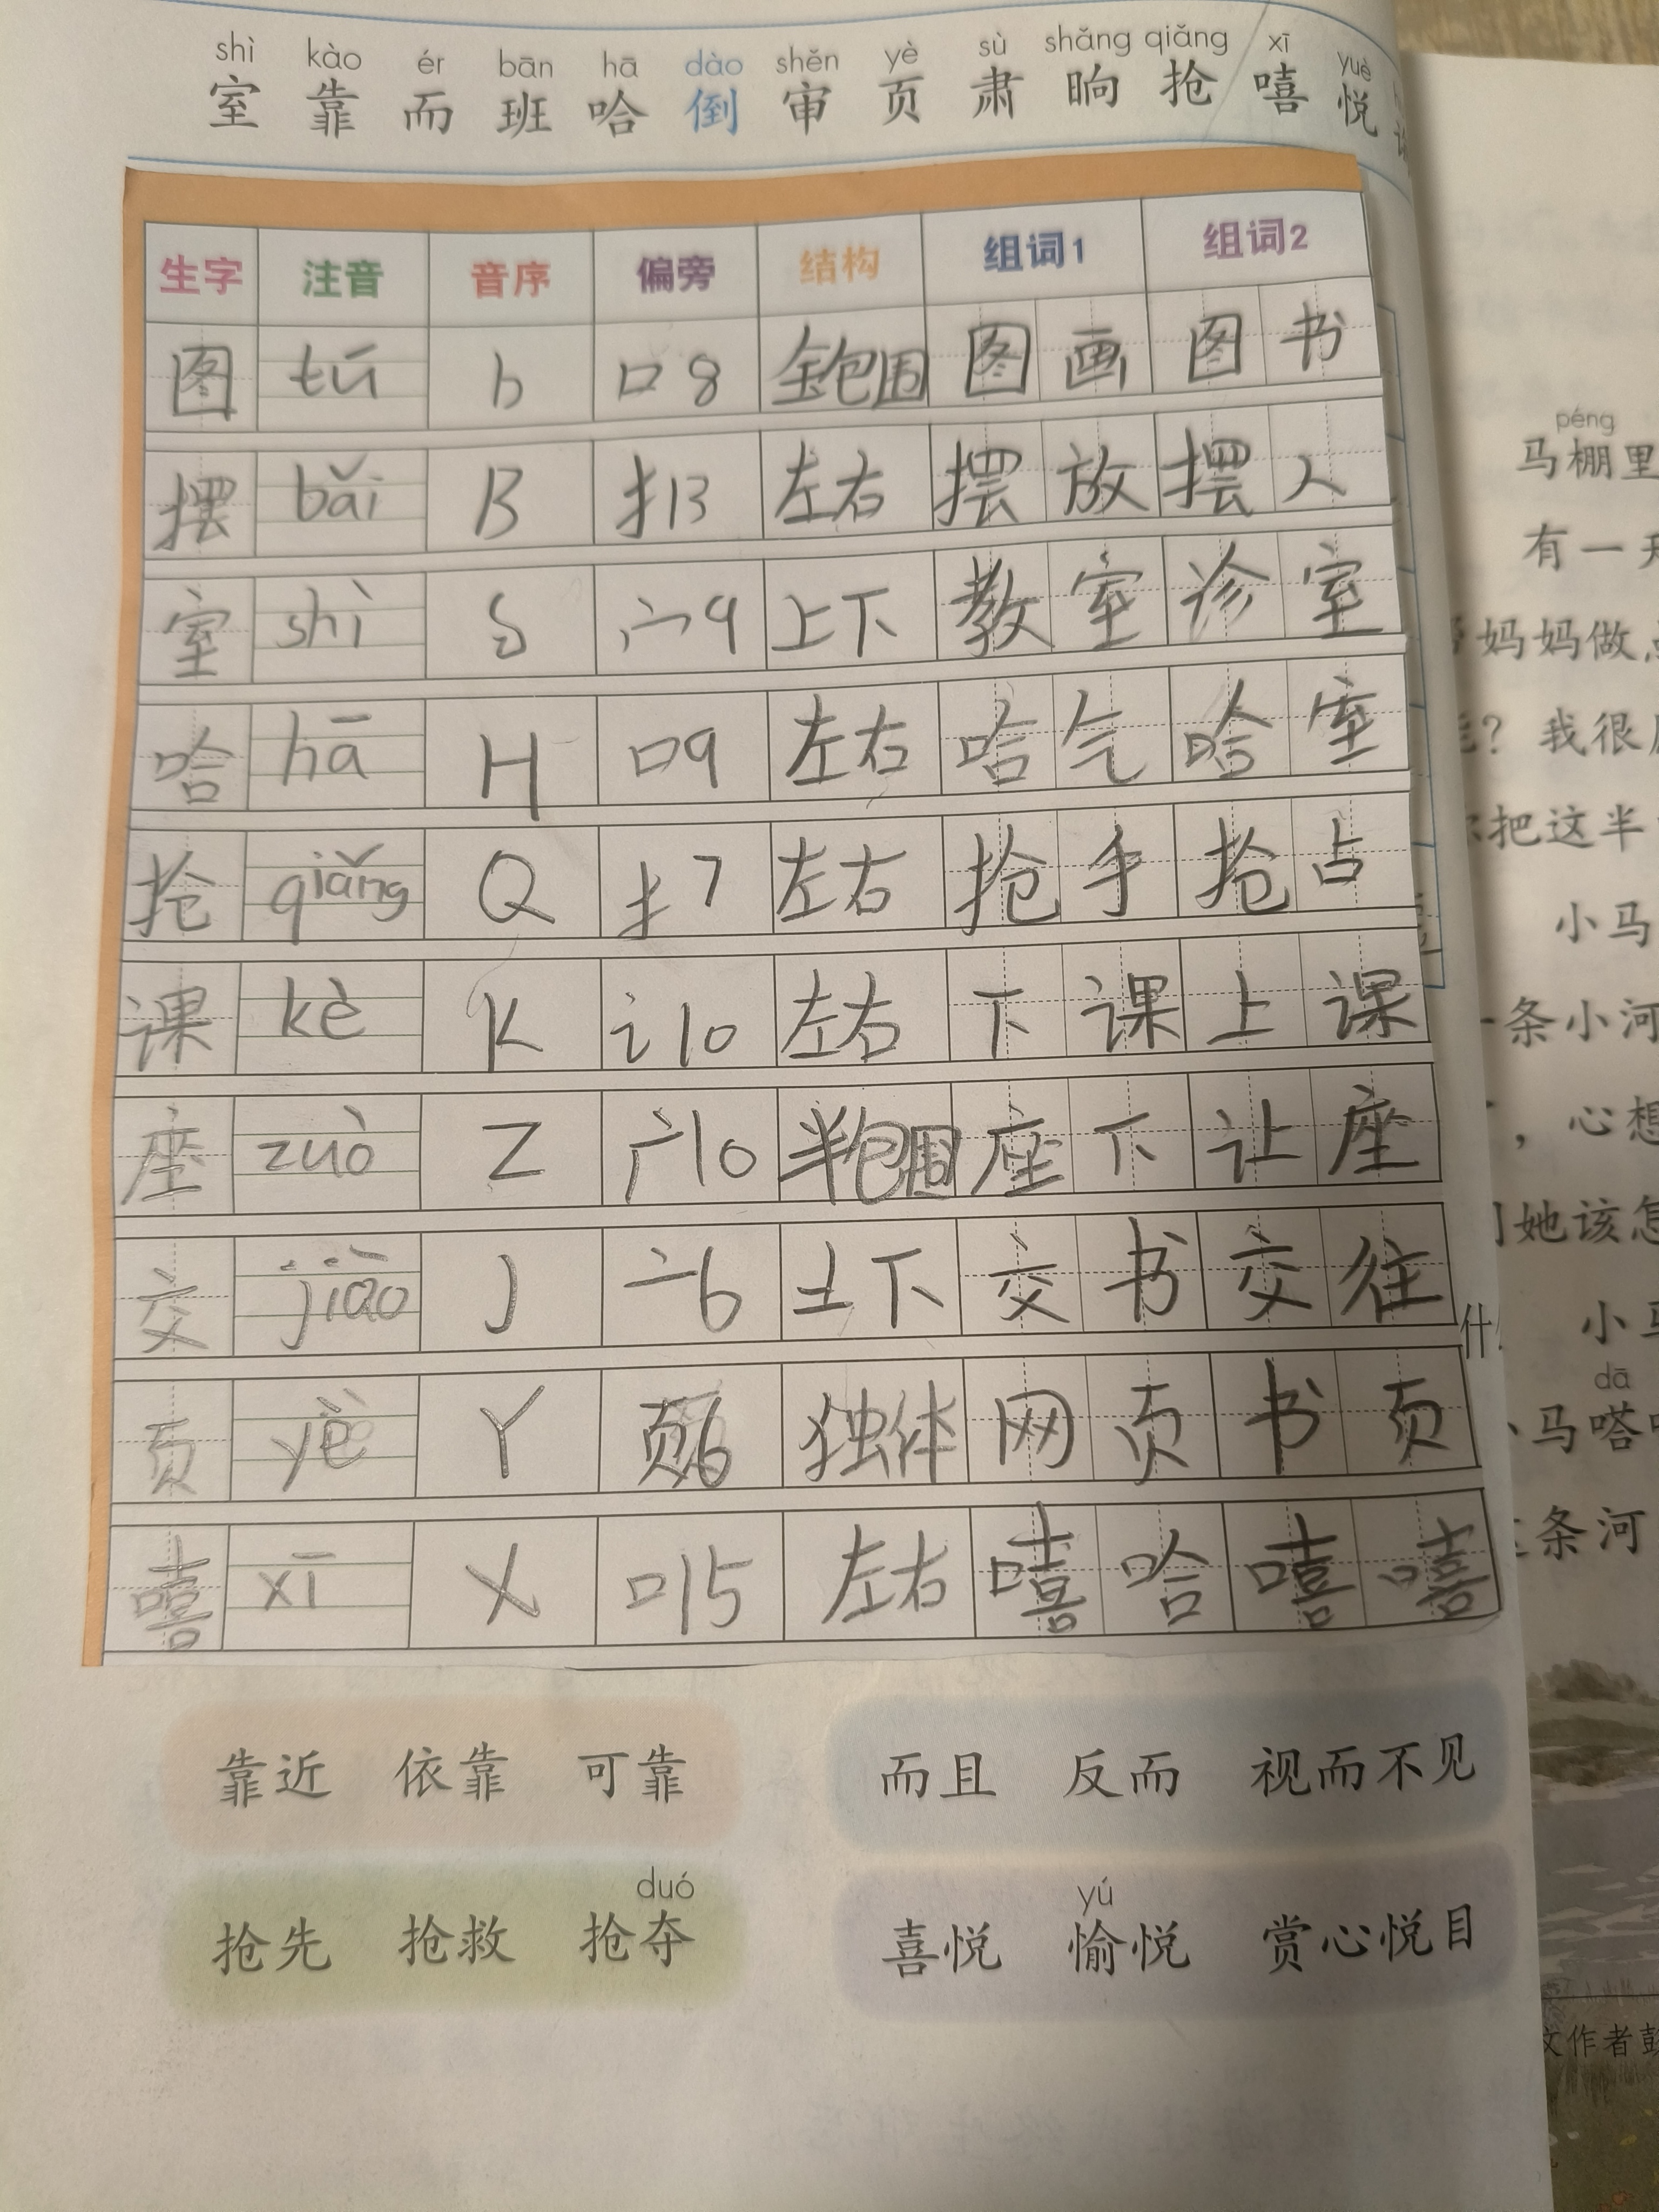 shì kào ér bān hā dào shěn yè sù shǎng qiǎng xī yuè
室 靠 而 班 哈 倒 审 页 肃 晌 抢 嘻 悦
生字 注音 音序 偏旁 结构 组词1 组词2
图 tú b 口8 全包围 图画 图书
摆 bǎi B 扌13 左右 摆放 摆人
室 shì S 宀9 上下 教室 诊室
哈 hā H 口9 左右 哈气 哈室
抢 qiǎng Q 扌7 左右 抢手 抢占
课 kè K 讠10 左右 下课 上课
座 zuò Z 广10 半包围 座下 让座
交 jiāo J 亠6 上下 交书 交往
页 yè Y 页6 独体 网页 书页
嘻 xī X 口15 左右 嘻哈 嘻嘻
靠近 依靠 可靠
而且 反而 视而不见
duó
抢先 抢救 抢夺
yú
喜悦 愉悦 赏心悦目
péng
马棚里
有一天
妈妈做
？我很
把这半
小马
条小河
，心想
她该怎
什
小马
dā
马嗒
条河
文作者彭